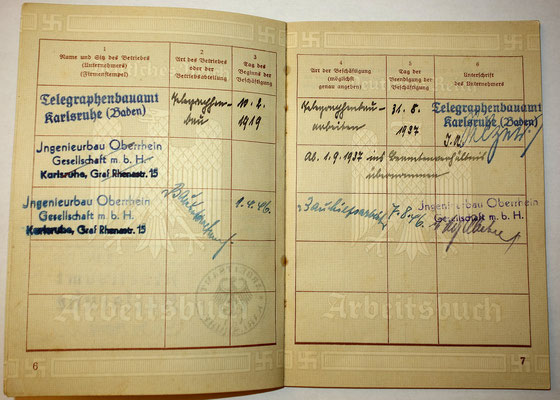 1
Name und Sitz des Betriebes
(Unternehmers)
(Firmenstempel)
2
Art des Betriebes
oder der
Betriebsabteilung
3
Tag des
Beginns der
Beschäftigung
Telegraphenbauamt
Karlsruhe (Baden)
Telegraphen-
bau
10.2.
1919
Ingenieurbau Oberrhein
Gesellschaft m. b. H.
Karlsruhe, Graf Rhenastr. 15
Ingenieurbau Oberrhein
Gesellschaft m. b. H.
Karlsruhe, Graf Rhenastr. 15
1.4.46
Arbeitsbuch
6
4
Art der Beschäftigung
(möglichst
genau angeben)
5
Tag der
Beendigung der
Beschäftigung
6
Unterschrift
des Unternehmers
Telegraphenbau-
arbeiten
31.8.
1937
Telegraphenbauamt
Karlsruhe (Baden)
Ab 1.9.1937 ins Beamtenverhältnis
übernommen
Bauhilfsarbeiter
7.8.46.
Ingenieurbau Oberrhein
Gesellschaft m. b. H.
Arbeitsbuch
7